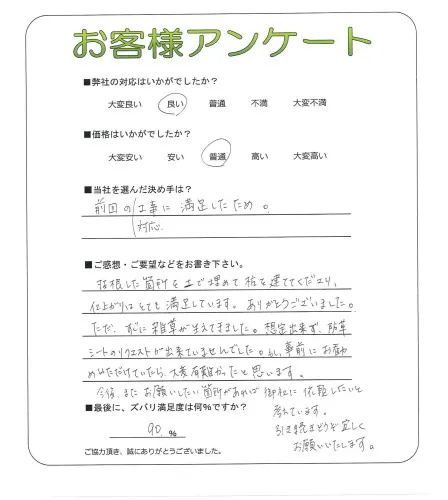 お客様アンケート
■弊社の対応はいかがでしたか？
大変良い　良い　普通　不満　大変不満
■価格はいかがでしたか？
大変安い　安い　普通　高い　大変高い
■当社を選んだ決め手は？
前回の工事に満足したため。
対応
■ご感想・ご要望などをお書き下さい。
抜根した箇所を土で埋めて杭を建ててくださり、
仕上がりはとても満足しています。ありがとうございました。
ただ、すぐに雑草が生えてきました。想定出来ず、防草
シートのリクエストが出来ていませんでした。もし、事前にお勧
めいただけていたら、大変有難かったと思います。
今後、またお願いしたい箇所があれば御社に依頼したいと
考えています。
引き続きどうぞ宜しく
お願いいたします。
■最後に、ズバリ満足度は何％ですか？
90 ％
ご協力頂き、誠にありがとうございました。